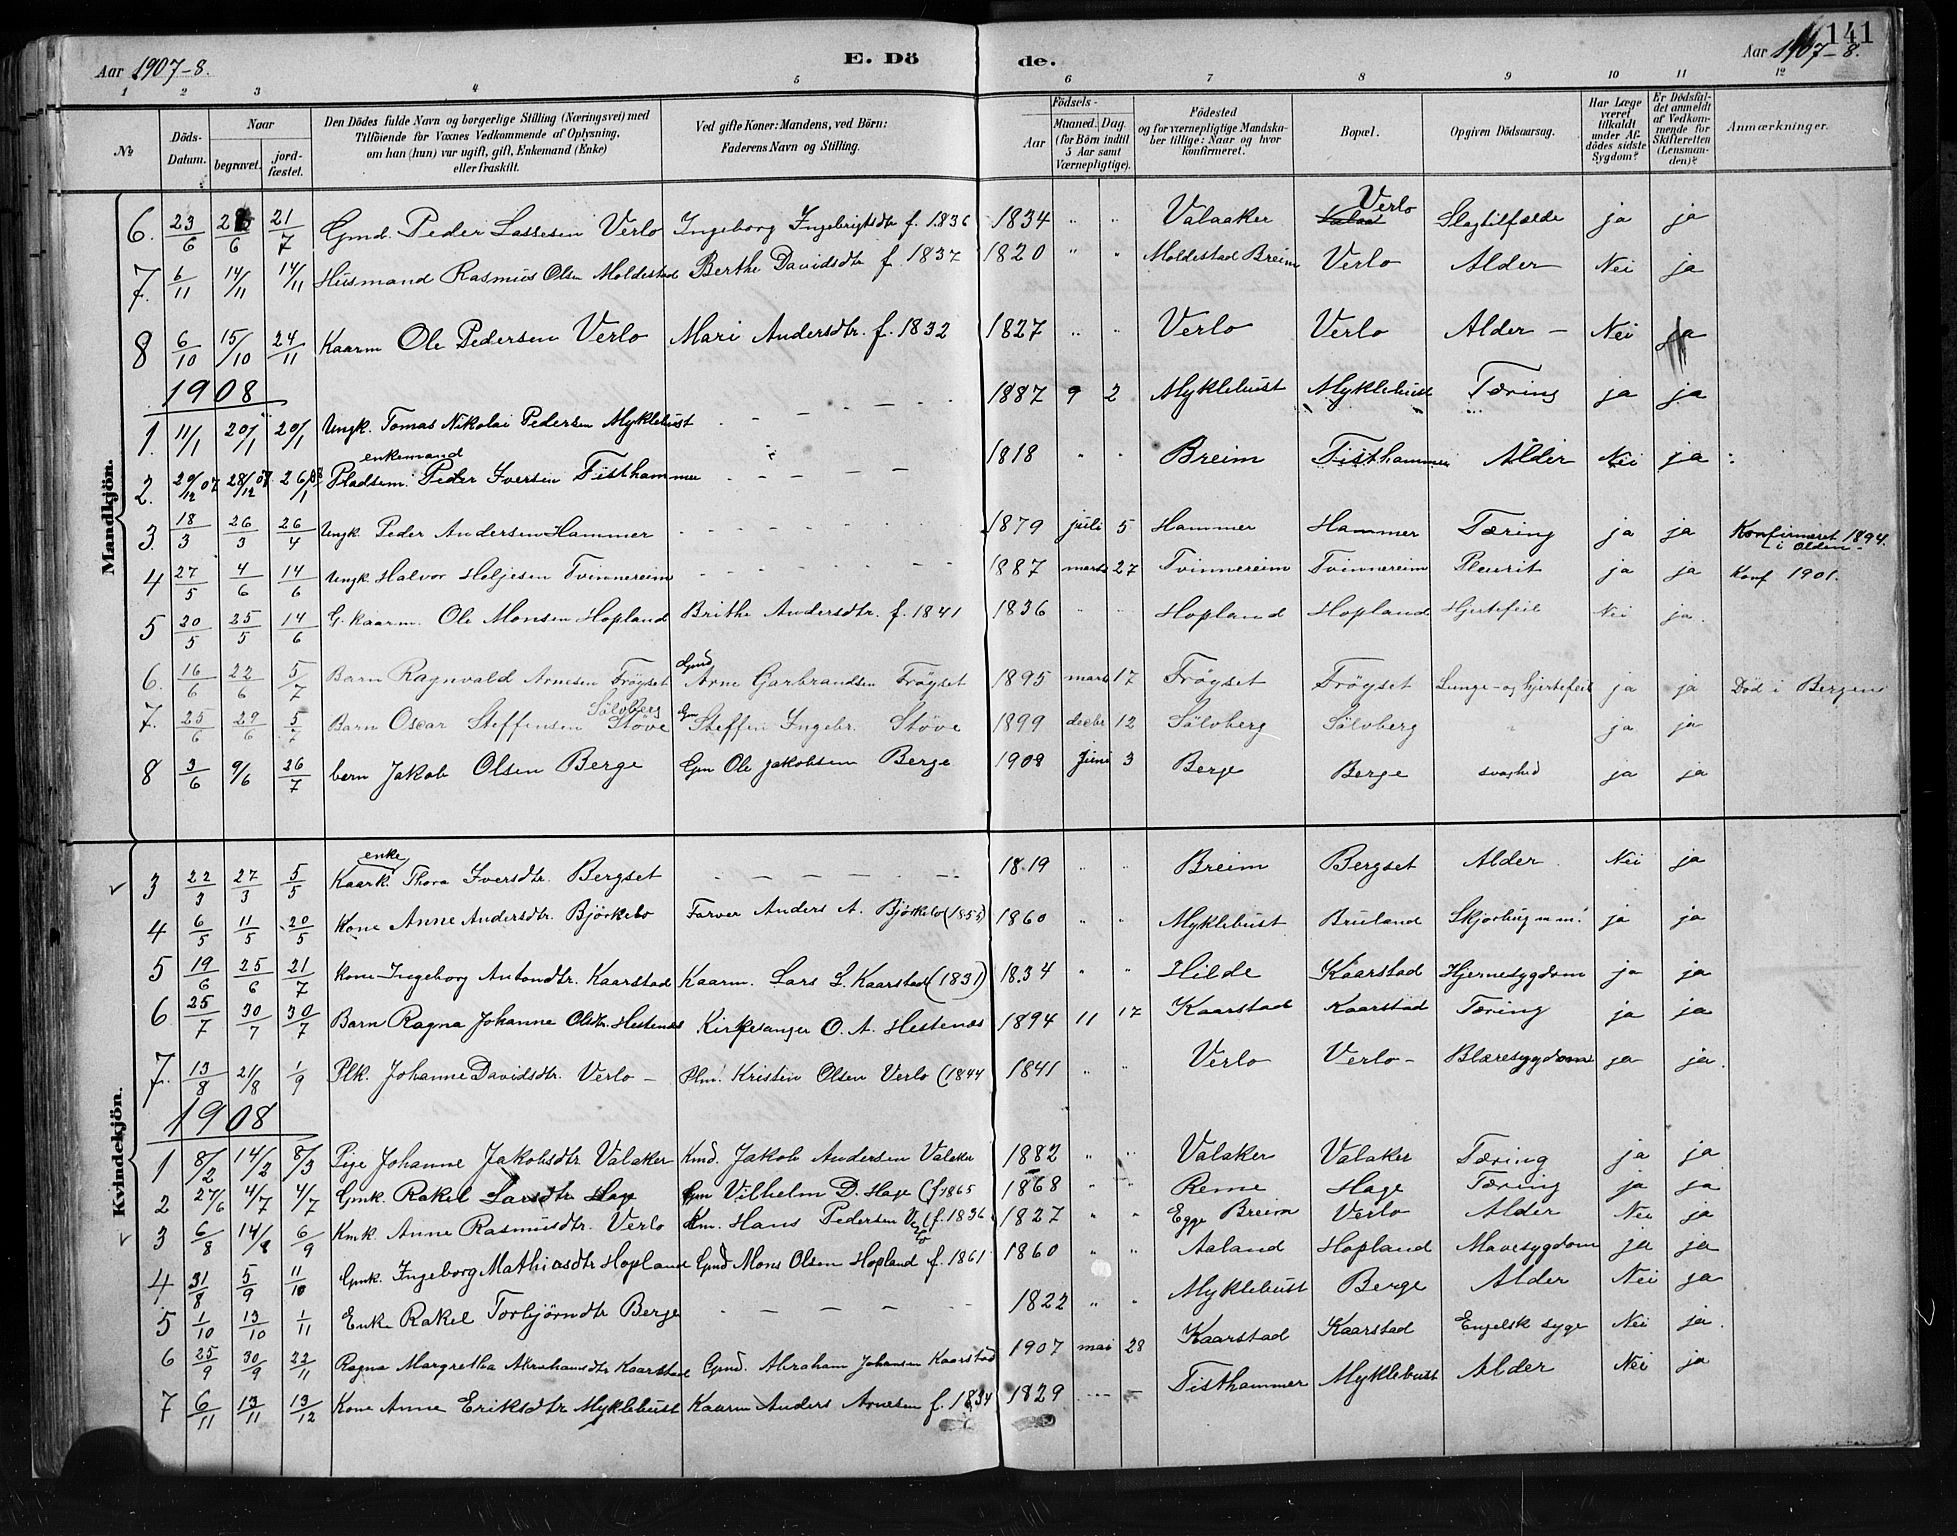 Aar 1907-8. E. Dö de. Aar 1907-8. 141
1 2 3 4 5 6 7 8 9 10 11 12
№ Döds-Datum. Naar begravet. jord-fæstet. Den Dödes fulde Navn og borgerlige Stilling (Næringsvei) med Tilföiende for Voxnes Vedkommende af Oplysning, om han (hun) var ugift, gift, Enkemand (Enke) eller fraskilt. Ved gifte Koner: Mandens, ved Börn: Faderens Navn og Stilling. Födsels- Aar Maaned. Dag. (for Börn indtil 5 Aar samt Værnepligtige). Födested og for værnepligtige Mandska-ber tillige: Naar og hvor konfirmeret. Bopæl. Opgiven Dödsaarsag. Har Læge været tilkaldt under Af-dödes sidste Sygdom? Er Dödsfal-det anmeldt af Vedkom-mende for Skifteretten (Lensman-den)? Anmærkninger.
Mandkjön.
6. 23/6 21/7 Gmd. Peder Lassesen Verlo Ingeborg Ingebrigtsdtr f. 1836 1834 " " Valaaker Verlo Slagtilfælde ja ja
7. 6/11 14/11 14/11 Husmand Rasmus Olsen Moldestad Berthe Davidsdtr f 1837 1820 " " Moldestad Breim Verlo Alder Nei ja
8 6/10 15/10 24/11 Kaarm Ole Pedersen Verlo Mari Andersdtr. f. 1832 1827 " " Verlo Verlo Alder – Nei ja
1908
1. 11/1 20/1 20/1 Ungk. Tomas Nikolai Pedersen Myklebust - - - - 1887 9 2 Myklebust Myklebust Tæring ja ja
2. 20/12 07 28/12 07 26/1 08 enkemand Pladsem. Peder Iversen Tisthammer - - - - 1818 " " Breim Tisthammer Alder Nei ja
3. 18/3 26/3 26/4 Ungk. Peder Andersen Hammer - - - - 1879 juli 5 Hammer Hammer Tæring ja ja Konfirmeret 1894. i Olden-
4 27/5 4/6 14/6 Ungk Halvor Heljesen Tvinnereim - - - - 1887 marts 27 Tvinnereim Tvinnereim Pleurit ja ja Konf 1901.
5 20/5 25/5 14/6 G. kaarm. Ole Monsen Hopland Brithe Andersdtr. f. 1841 1836 " " Hopland Hopland Hjertefeil Nei ja.
6. 16/6 22/6 5/7 Barn Ragnvald Arnesen Fröyset Gmd Arne Garbrandsen Fröyset 1895 mars 17 Fröyset Fröyset Lunge- og hjertefeil ja ja Död i Bergen
7. 25/6 29/6 5/7 Barn Oscar Steffensen Sölvberg Stöve Gm Steffen Ingebr. Stöve 1899 decbr 12 Sölvberg Sölvberg " ja ja
8 3/6 9/6 26/7 barn Jakob Olsen Berge Gm Ole Jakobsen Berge 1908 Juni 3 Berge Berge svaghed ja ja
Kvindekjön.
3 22/3 27/3 5/5 enke Kaark. Thora Iversdtr. Bergset - - - - 1819 " Breim Bergset Alder Nei ja
4 6/5 11/5 20/5 Kone Anne Andersdtr. Björkelo Farver Anders A. Björkelo (1855) 1860 " " Myklebust Bruland m.m. ja ja
5 19/6 25/6 21/7 Kone Ingeborg Antondtr. Kaarstad Kaarm. Lars L. Kaarstad (1831) 1834 " " Hilde Kaarstad Hjernesygdom ja ja
6 25/7 30/7 30/7 Barn Ragna Johanne Olsdtr. Hestenes Kirkesanger O. A. Hestenes 1894 11 17 Kaarstad Kaarstad Tæring ja ja
7. 13/8 21/8 1/9 Plk. Johanne Davidsdtr. Verlo – Plm. Kristen Olsen Verlo (1844 1841 " " Verlo Verlo – Blæresygdom ja ja.
1908
1 8/2 14/2 8/3 Pige Johanne Jakobsdtr Valaker Kmd. Jakob Andersen Valaker 1882 " " Valaker Valaker Tæring ja ja
2 27/6 4/7 4/7 Gmk. Rakel Larsdtr Hage Gm Vilhelm D. Hage (f. 1865 1868 " " Reme Hage Tæring ja ja
3 6/8 14/8 6/9 Kmk. Anne Rasmusdtr. Verlo Km. Hans Pedersen Verlo (f. 1836 1827 " " Egge Breim Verlo Alder Nei ja
4. 31/8 5/9 11/10 Gmk. Ingeborg Mathiasdtr Hopland Gmd Mons Olsen Hopland f. 1861 1860 " " Aaland Hopland Mavesygdom ja ja
5 1/10 13/10 1/11 Enke Rakel Torbjörndtr Berge - - - - 1822 " " Myklebust Berge Alder Nei ja
6 25/9 30/9 22/11 Ragna Margretha Abrahamsdtr Kaarstad Gmd. Abraham Johansen Kaarstad 1907 mai 28 Kaarstad Kaarstad Engelsk syge Nei ja.
7 6/11 13/11 13/12 Kone Anne Eriksdtr Myklebust Kaarm Anders Arnesen f. 1834 1829 - - Tisthammer Myklebust Alder Nei ja